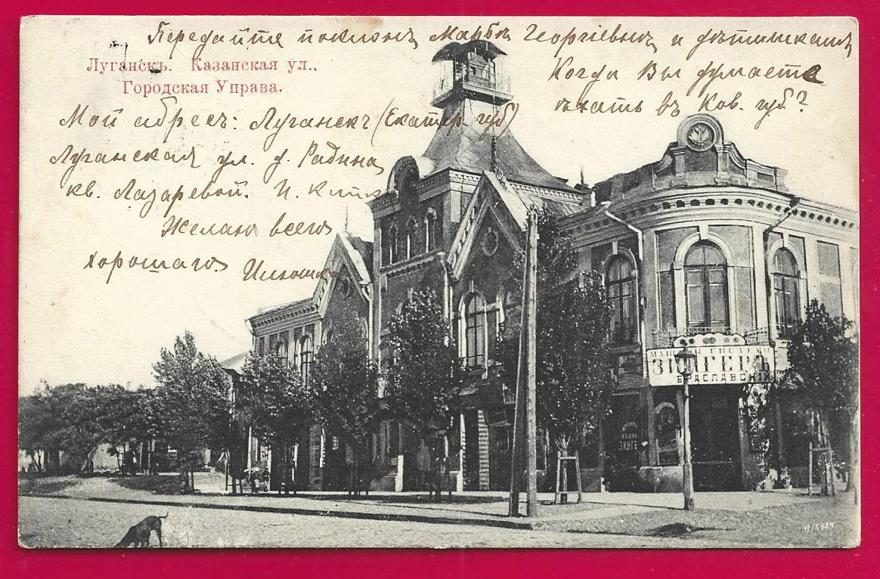 Передайте поклонъ Марьѣ Георгіевнѣ и дѣтишкамъ
Когда Вы думаете
ѣхать въ Ков. губ?
Луганскъ. Казанская ул.,
Городская Управа.
Мой адресъ: Луганскъ (Екатер. губ)
Луганская ул. д. Радина
кв. Лазаревой. И.
Желаю всего
хорошаго
МАШИНЫ
ЗИНГЕРЪ
БРАСЛАВСКІЙ